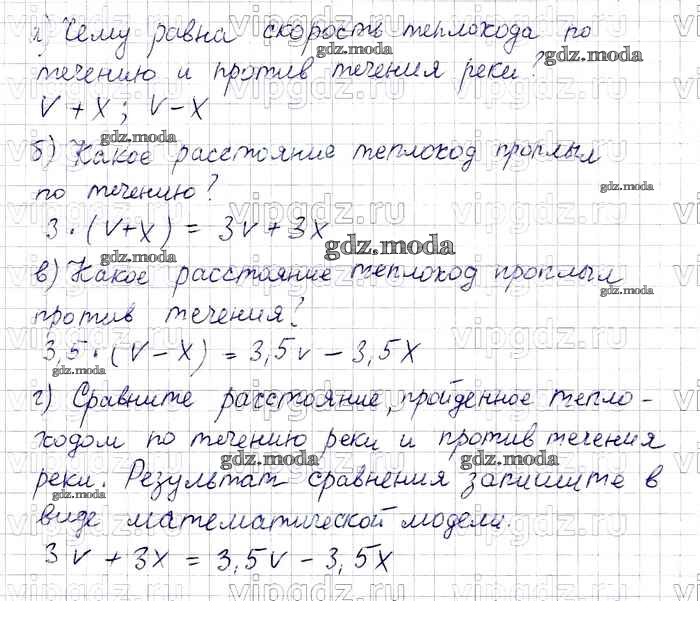 а) Чему равна скорость теплохода по
течению и против течения реки?
V + X ; V – X
б) Какое расстояние теплоход проплыл
по течению?
3 · (V + X) = 3V + 3X
в) Какое расстояние теплоход проплыл
против течения?
3,5 · (V – X) = 3,5V – 3,5X
г) Сравните расстояние, пройденное тепло-
ходом по течению реки и против течения
реки. Результат сравнения запишите в
виде математической модели.
3V + 3X = 3,5V – 3,5X
gdz.moda
gdz.moda
gdz.moda
gdz.moda
gdz.moda
gdz.moda
gdz.moda
gdz.moda
gdz.moda
gdz.moda
gdz.moda
vipgdz.ru